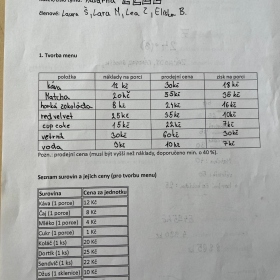 členové: Laura Š, Lara M, Lea Č, Eliška B.
1. Tvorba menu
položka náklady na porci prodejní cena zisk na porci
káva 12 kč 30kč 18 kč
Matcha 20kč 55kč 35 kč
horká čokoláda 8 kč 24kč 16kč
red velvet 25kč 35kč 10kč
cup cake 15kč 22kč 7kč
větrník 30kč 60kč 30kč
voda 3kč 10kč 7kč
Pozn.: prodejní cena (musí být vyšší než náklady, doporučeno min. o 40 %).
Seznam surovin a jejich ceny (pro tvorbu menu)
Surovina Cena za jednotku
Káva (1 porce) 12 Kč
Čaj (1 porce) 8 Kč
Mléko (1 porce) 4 Kč
Cukr (1 porce) 1 Kč
Koláč (1 ks) 20 Kč
Dortík (1 ks) 25 Kč
Sendvič (1 ks) 22 Kč
Džus (1 sklenice) 10 Kč